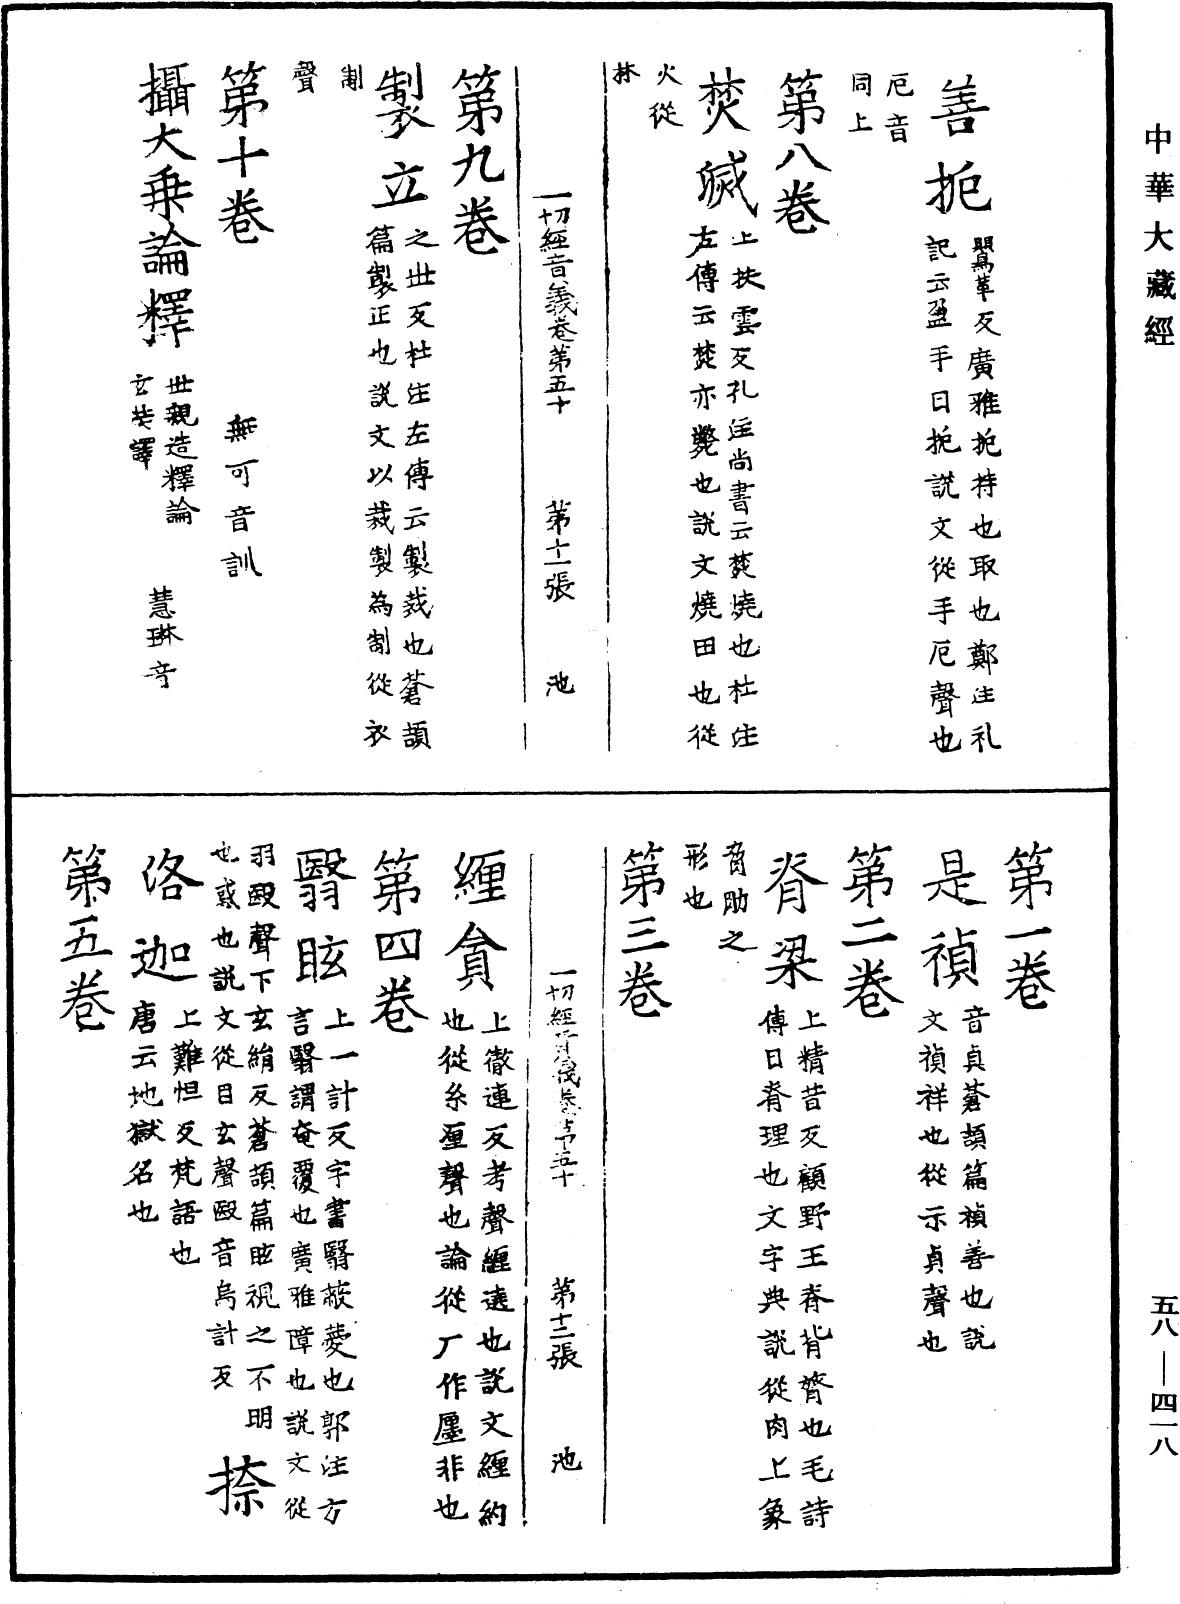 中華大藏經
善扼 鷖革反廣雅扼持也取也鄭注礼
記云盈手曰扼説文從手厄聲也
厄音
同上
第八卷
焚滅 上扶雲反孔注尚書云焚燒也杜注
左傳云焚亦斃也說文燒田也從
火從
林
一切經音義卷第五十 第十一張 池
第九卷
製立 之世反杜注左傳云製裁也蒼頡
篇製正也説文以裁製為制從衣
制
聲
第十卷 無可音訓
攝大乗論釋 世親造釋論
玄奘譯 慧琳音
第一卷
是禎 音貞蒼頡篇禎善也説
文禎祥也從示貞聲也
第二卷
脊梁 上精昔反顧野王脊背膂也毛詩
傳曰脊理也文字典説從肉上象
脅肋之
形也
第三卷
一切經音義卷第五十 第十二張 池
纏貪 上徹連反考聲纏遶也説文纏約
也從糸㕓聲也論從厂作㕓非也
第四卷
翳眩 上一計反字書翳蔽薆也郭注方
言翳謂奄覆也廣雅障也説文從
羽殹聲下玄絹反蒼頡篇眩視之不明
也惑也説文從目玄聲殹音烏計反 捺
洛迦 上難怛反梵語也
唐云地獄名也
第五卷
五八—四一八